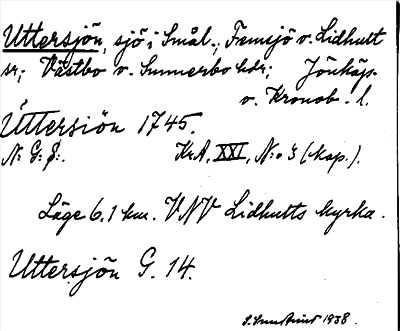 Uttersjön, sjö i Smål.; Femsjö o. Lidhult
sr; Västbo o. Sunnerbo hdr; Jönköp.
o. Kronob. l.
Uttersiön 1745.
N: G: S:. KrA, XXI, N:o 3 (kap.).
Läge 6,1 km. VNV Lidhults kyrka.
Uttersjön G. 14.
1938.